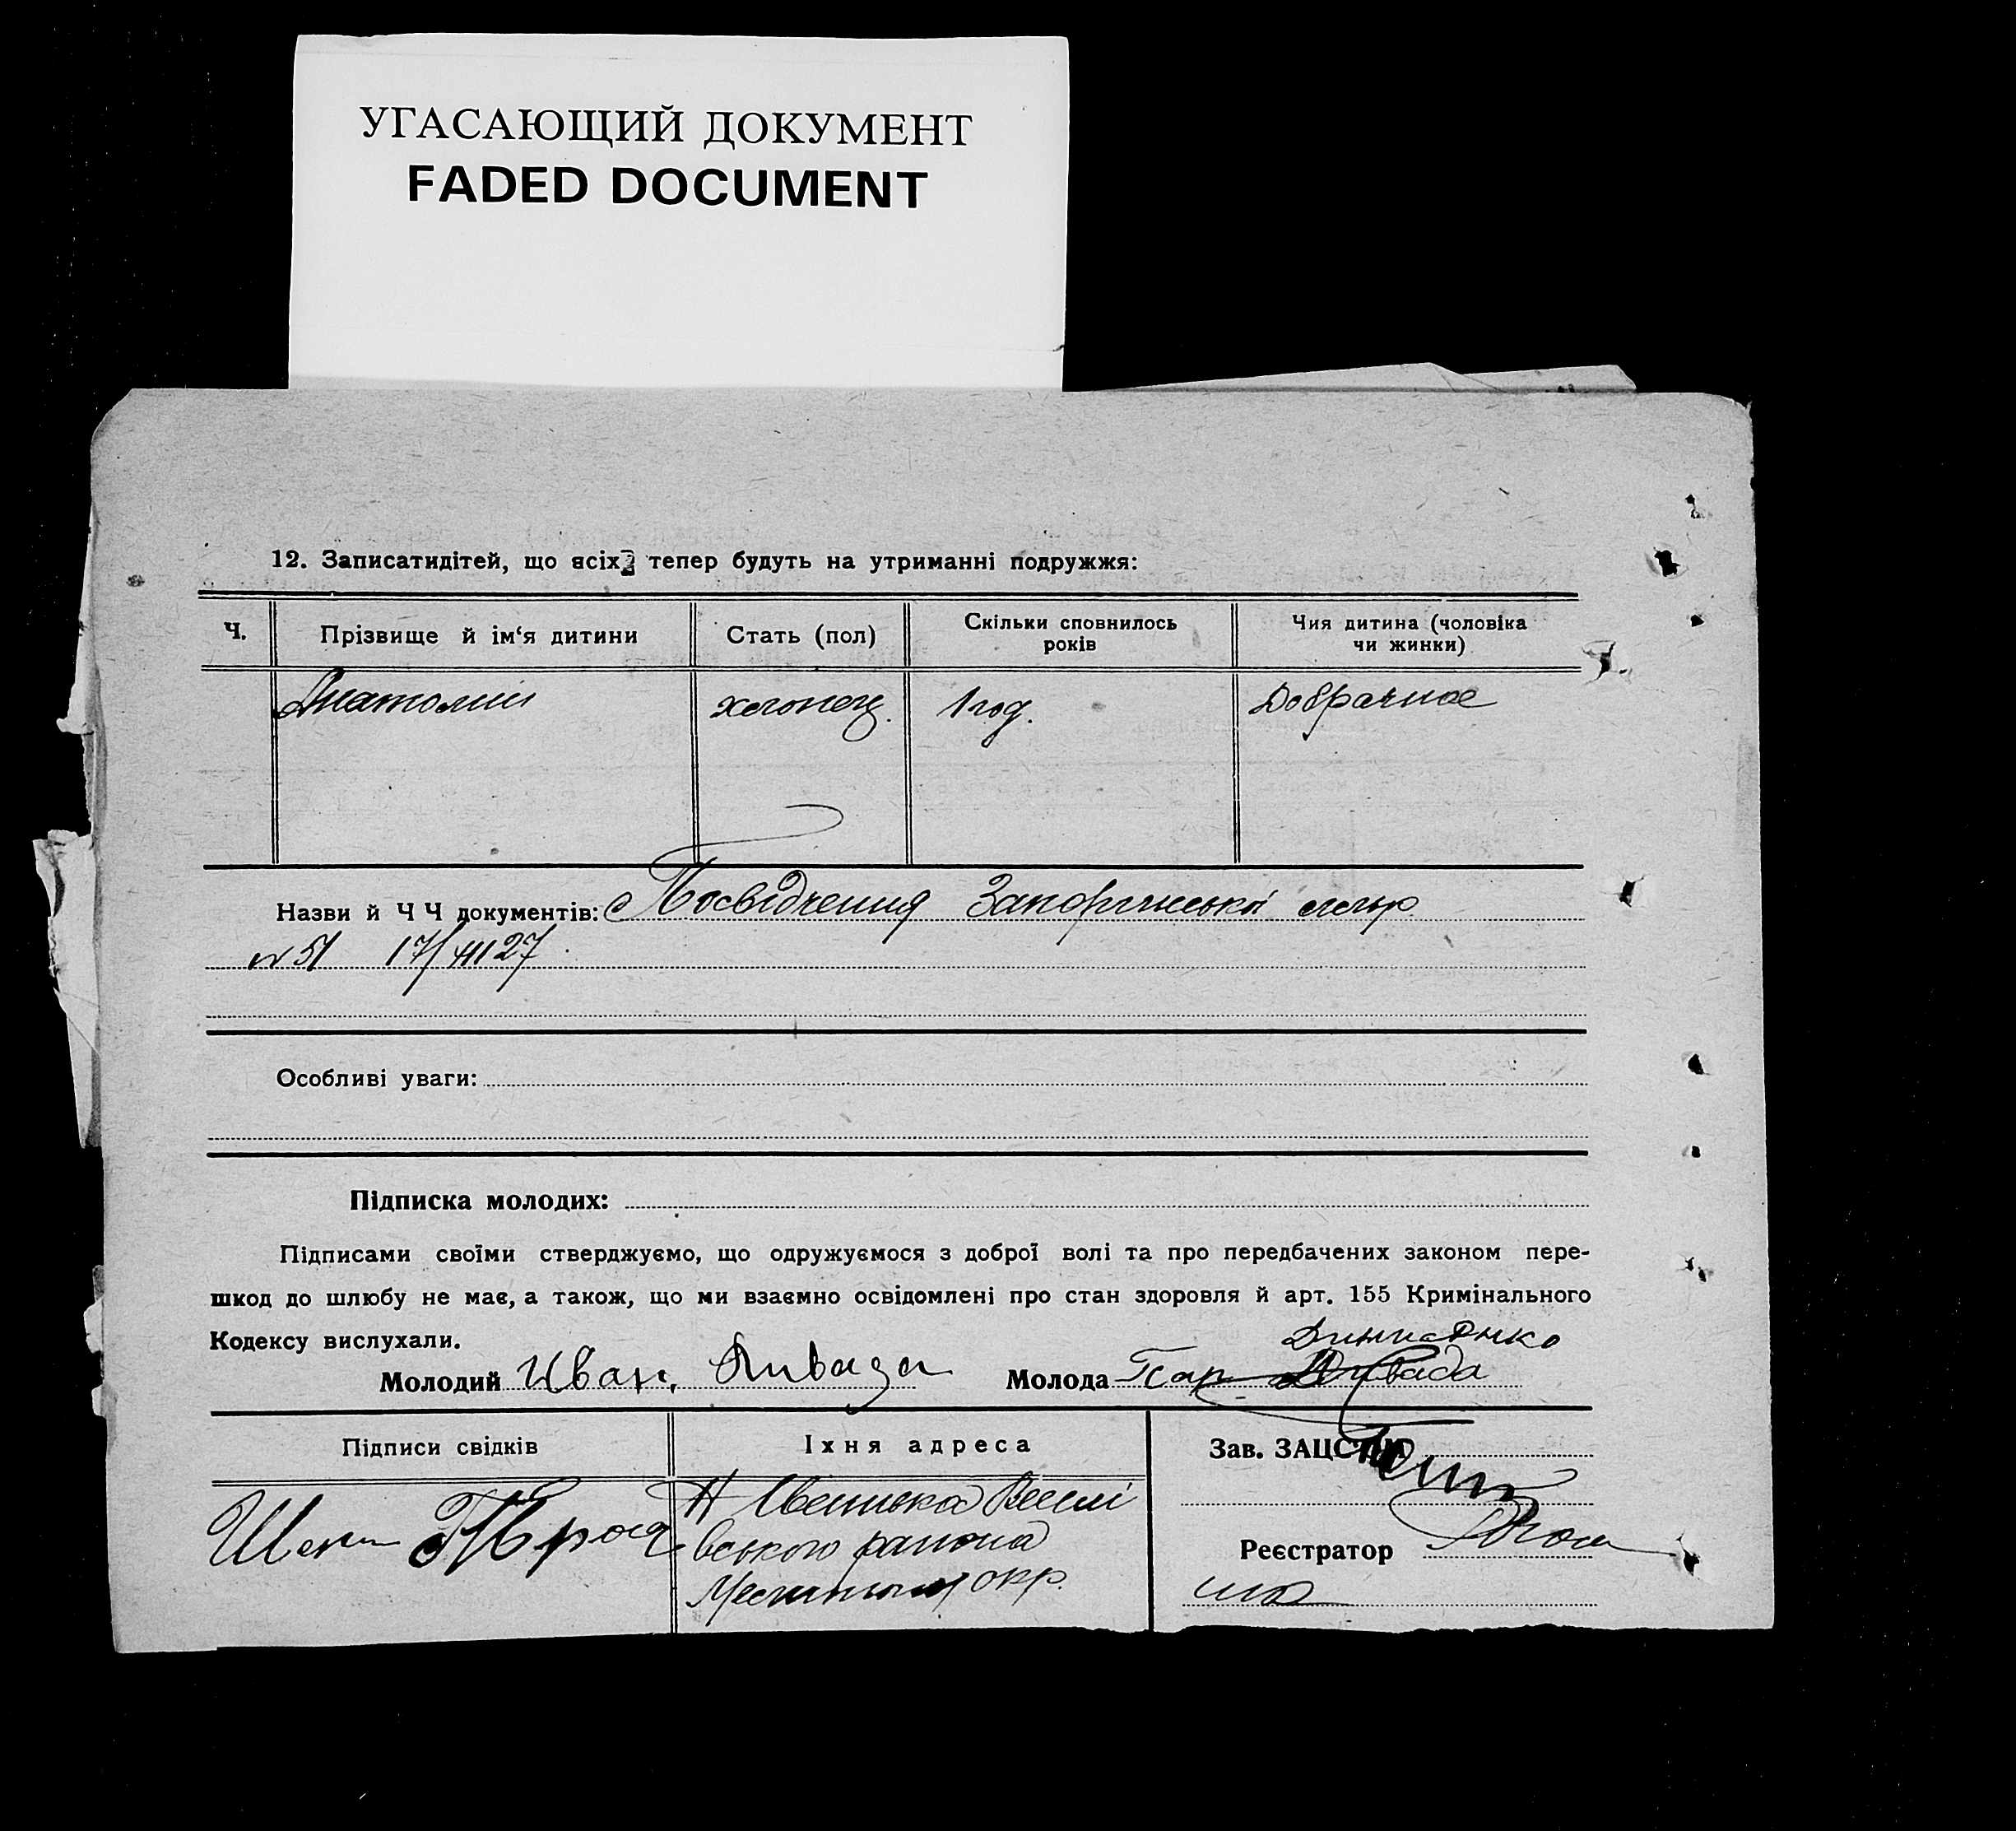 УГАСАЮЩИЙ ДОКУМЕНТ
FADED DOCUMENT
12. Записатидітей, що всіх тепер будуть на утриманні подружжя:
Ч. Прізвище й ім‘я дитини Стать (пол) Скільки сповнилось років Чия дитина (чоловіка чи жинки)
Анатолий хлопець. 1 год. Добрачное
Назви й Ч Ч документів: Посвідчення
№ 51 17/ 27
Особливі уваги:
Підписка молодих:
Підписами своїми стверджуємо, що одружуємося з доброї волі та про передбачених законом пере-
шкод до шлюбу не має, а також, що ми взаємно освідомлені про стан здоровля й арт. 155 Кримінального
Кодексу вислухали.
Молодий Иван Молода
Підписи свідків Їхня адреса Зав. ЗАЦСʼом
Н
вського района
окр.
Реєстратор